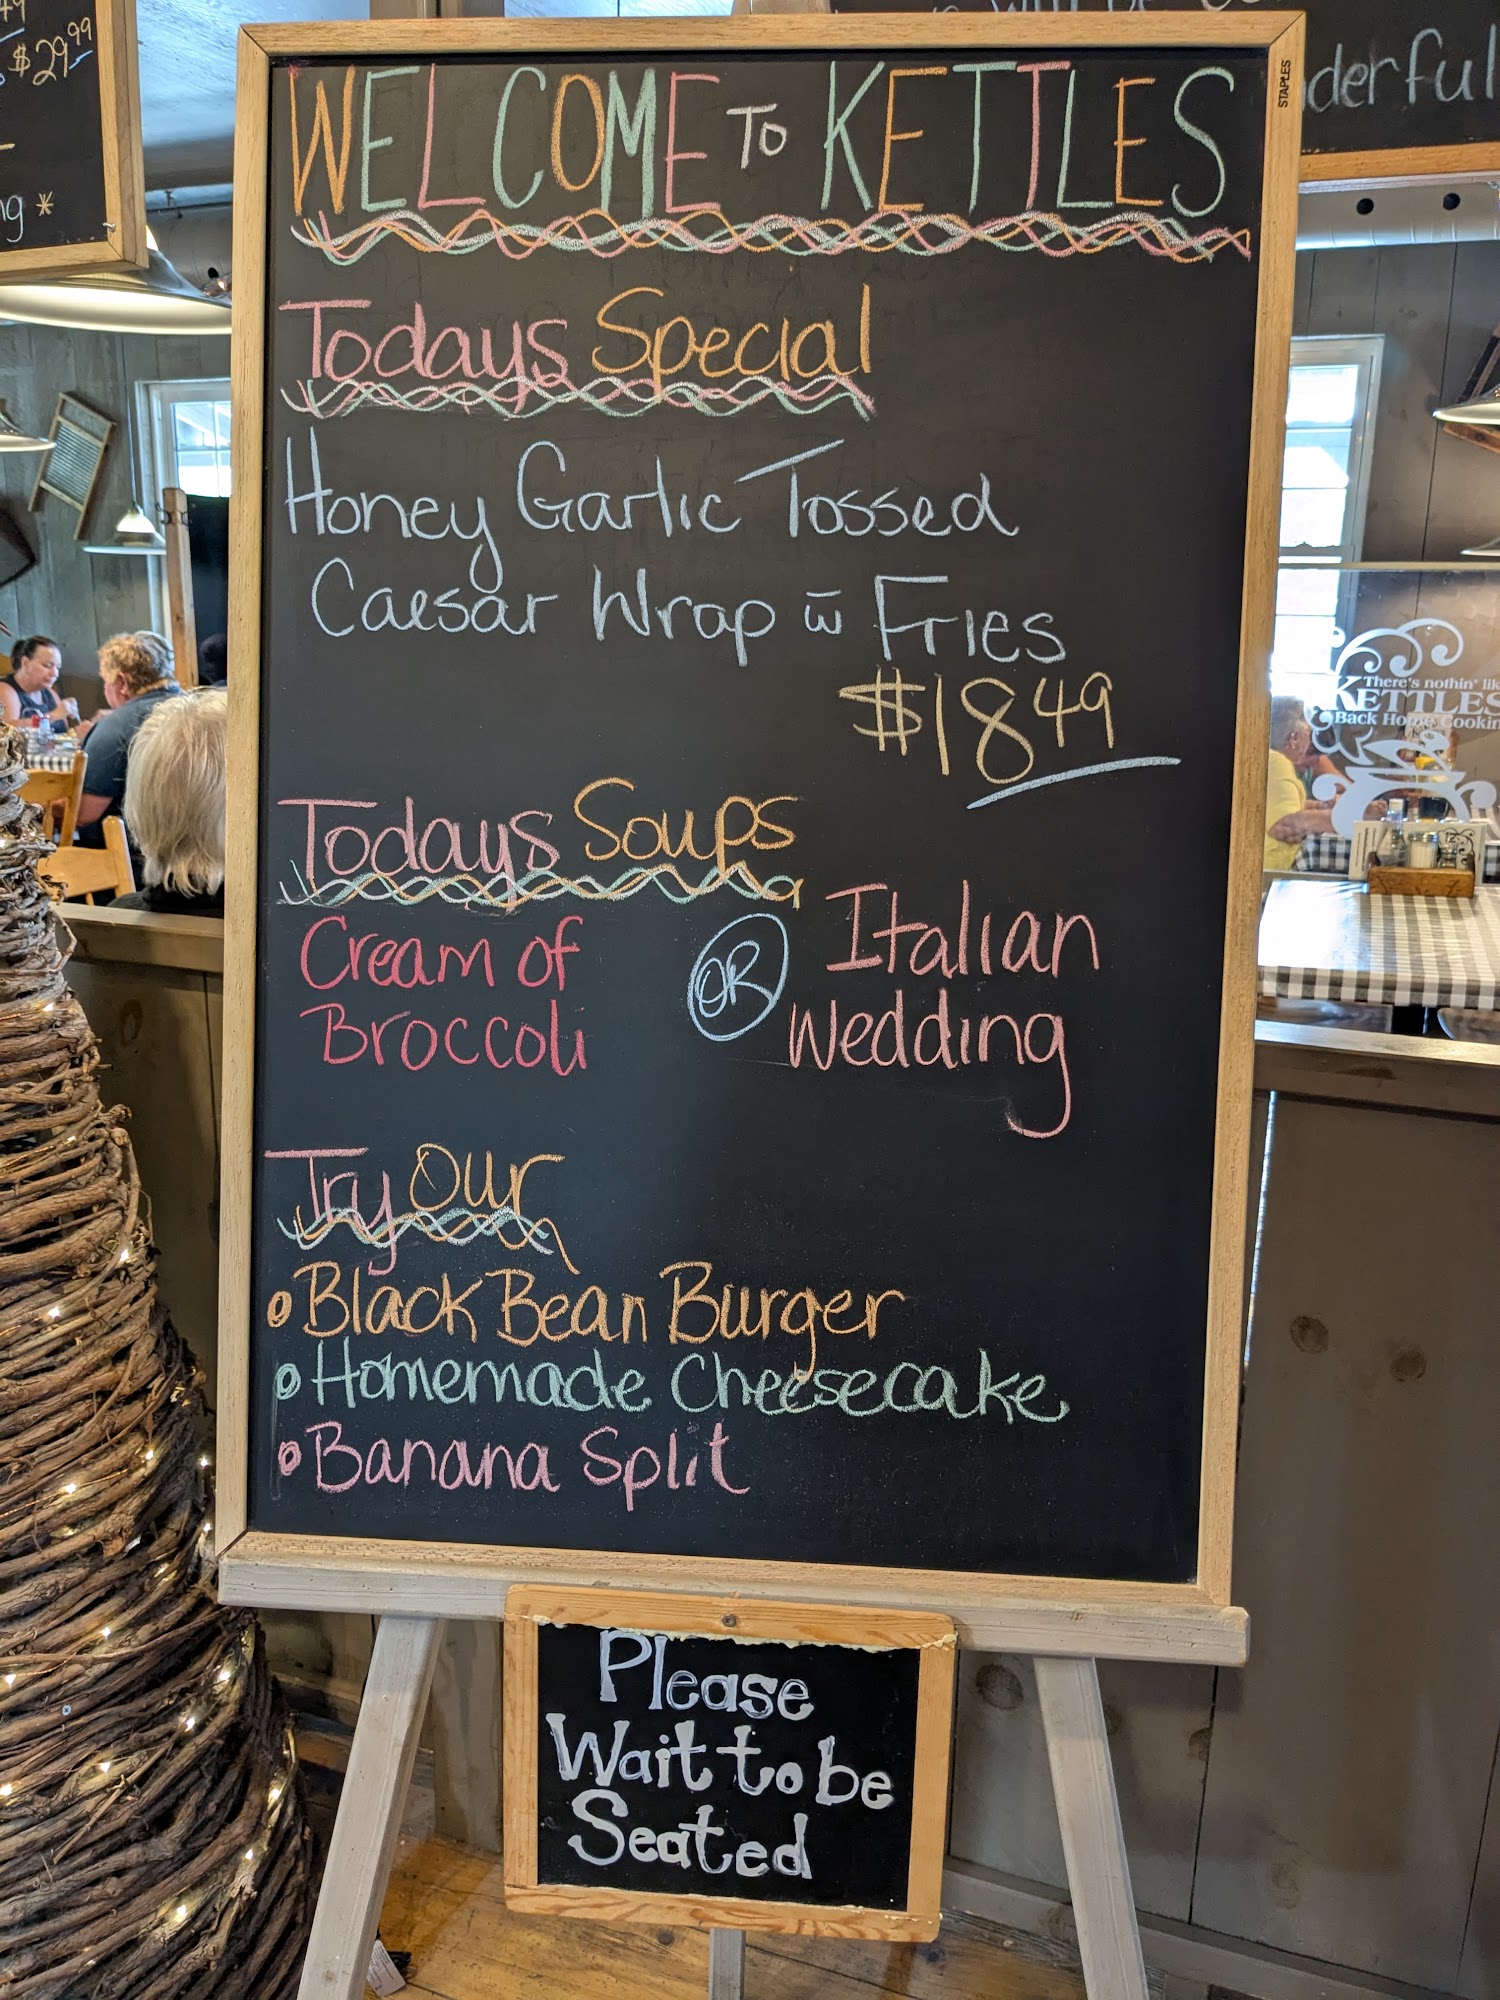 WELCOME TO KETTLES
STAPLES
Todays Special
Honey Garlic Tossed
Caesar Wrap w̄ Fries
$18 49
Todays Soups
Cream of
Broccoli
OR
Italian
Wedding
Try Our
Black Bean Burger
Homemade Cheesecake
Banana Split
Please
Wait to be
Seated
$29 99
ng *
derful
There's nothin' lik
KETTLES
Back Home Cookin